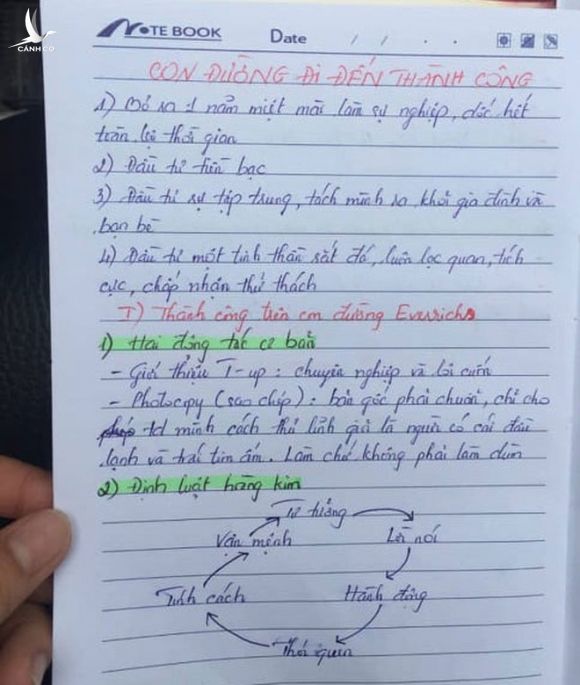 CÁNH CÒ
NOTE BOOK Date / / . .
CON ĐƯỜNG ĐI ĐẾN THÀNH CÔNG
1) Bỏ ra 1 năm miệt mài làm sự nghiệp, dốc hết
thời gian
2) Đầu tư tiền bạc
3) Đầu tư sự tập trung, tách mình ra khỏi gia đình và
bạn bè
4) Đầu tư một tinh thần sắt đá, luôn lạc quan, tích
cực, chấp nhận thử thách
I) Thành công trên con đường Everrichs
1) Hai động tác cơ bản
- Giới thiệu T-up : chuyên nghiệp và lôi cuốn
- Photocopy (sao chép) : bản gốc phải chuẩn, chỉ cho
td mình cách thủ lĩnh giỏi là người có cái đầu
lạnh và trái tim ấm. Làm chứ không phải làm dùm
2) Định luật hoàng kim
Tư tưởng
Vận mệnh Lời nói
Tính cách Hành động
Thói quen